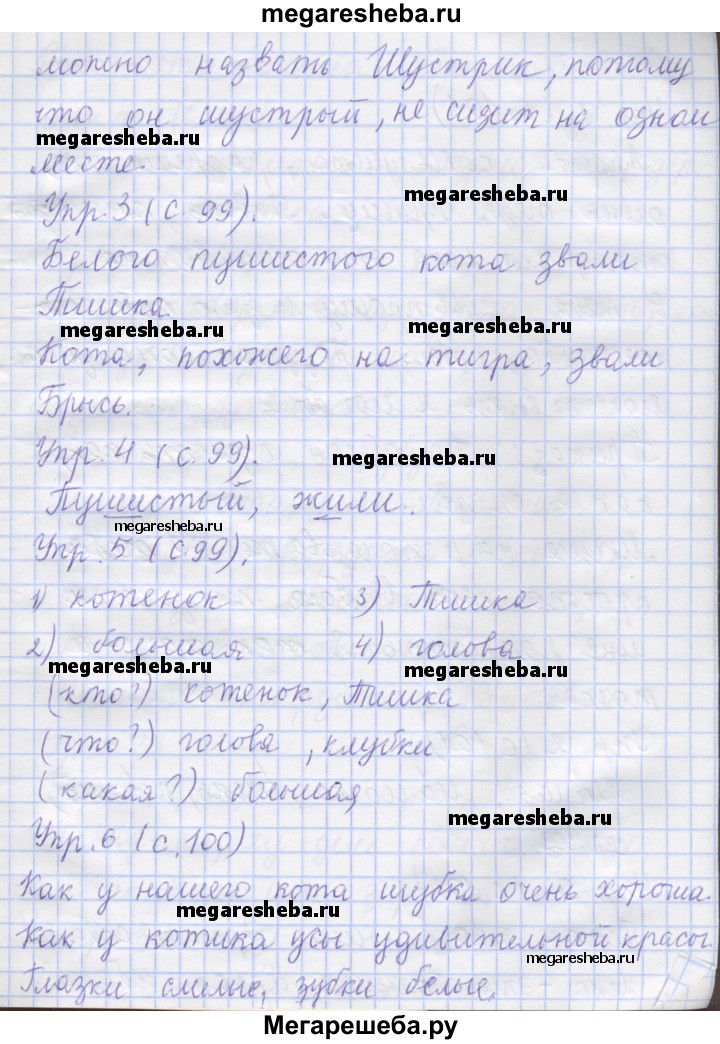 megaresheba.ru
можно назвать Шустрик, потому
что он шустрый, не сидит на одном
megaresheba.ru
месте.
megaresheba.ru
Упр. 3 (с. 99).
Белого пушистого кота звали
Тишка.
megaresheba.ru megaresheba.ru
Кота, похожего на тигра, звали
Брысь.
Упр. 4 (с. 99).
megaresheba.ru
Пушистый, жили.
megaresheba.ru
Упр. 5 (с 99).
1) котенок 3) Тишка
2) большая 4) голова
megaresheba.ru megaresheba.ru
(кто?) котенок, Тишка
(что?) голова, клубки
(какая?) большая
megaresheba.ru
Упр. 6 (с. 100)
Как у нашего кота шубка очень хороша.
megaresheba.ru
Как у котика усы удивительной красы.
Глазки смелые, зубки белые.
megaresheba.ru
Мегарешеба.ру